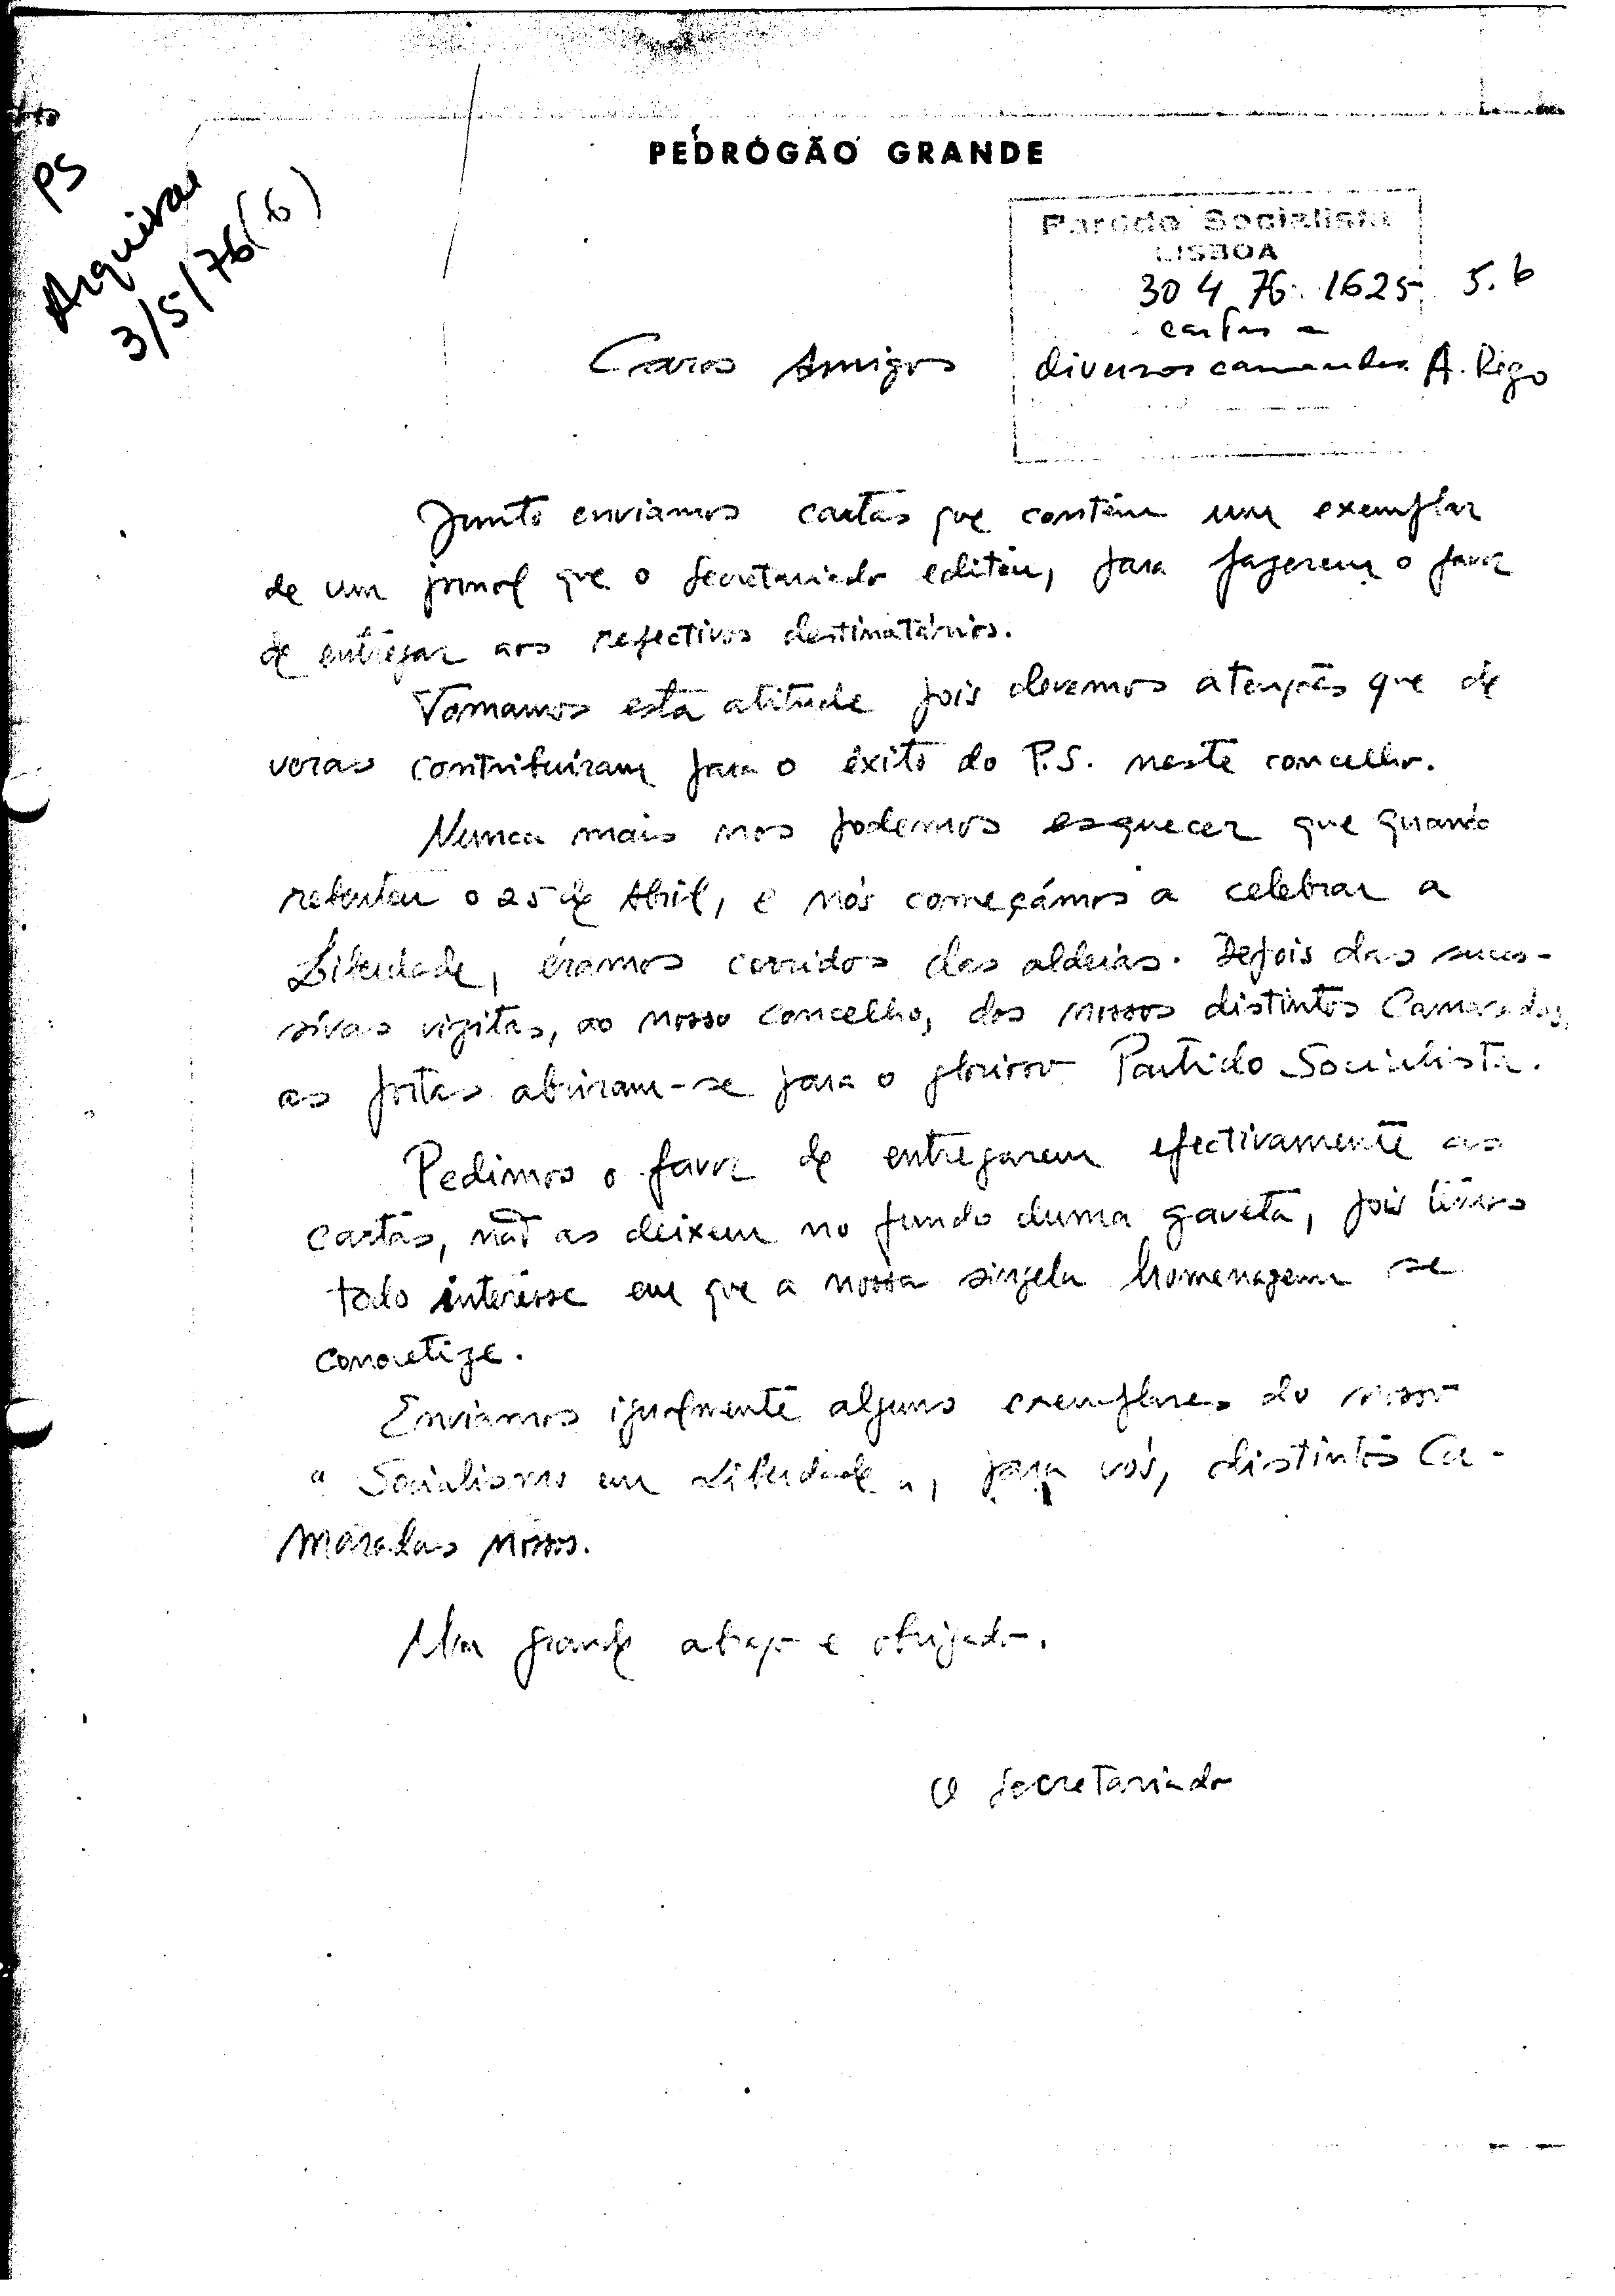 PEDRÓGÃO GRANDE
PS
Arquivar
3/5/76 (6)
Partido Socialista
LISBOA
30 4 76 1625 5.6
cartas a
diversos camaradas A. Rego
Caros Amigos
Junto enviamos cartas que contêm um exemplar
de um jornal que o Secretariado editou, para fazerem o favor
de entregar aos respectivos destinatários.
Tomamos esta atitude pois devemos atenções que de
veras contribuiram para o êxito do P.S. neste concelho.
Nunca mais nos podemos esquecer que quando
rebentou o 25 de Abril, e nós começámos a celebrar a
Liberdade, éramos corridos das aldeias. Depois das suces-
sivas vizitas, ao nosso concelho, dos nossos distintos Camaradas,
as portas abriram-se para o glorioso Partido Socialista.
Pedimos o favor de entregarem efectivamente as
cartas, não as deixem no fundo duma gaveta, pois temos
todo interesse em que a nossa singela homenagem se
concretize.
Enviamos igualmente alguns exemplares do nosso
"Socialismo em Liberdade", para vós, distintos Ca-
maradas nossos.
Um grande abraço e obrigado.
O Secretariado